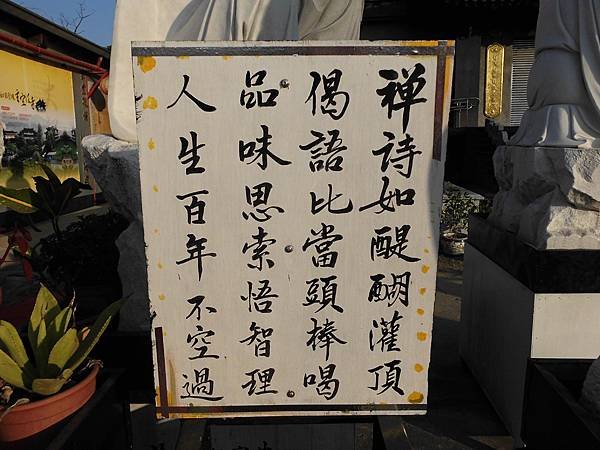 禅詩如醍醐灌頂
偈語比當頭棒喝
品味思索悟智理
人生百年不空過